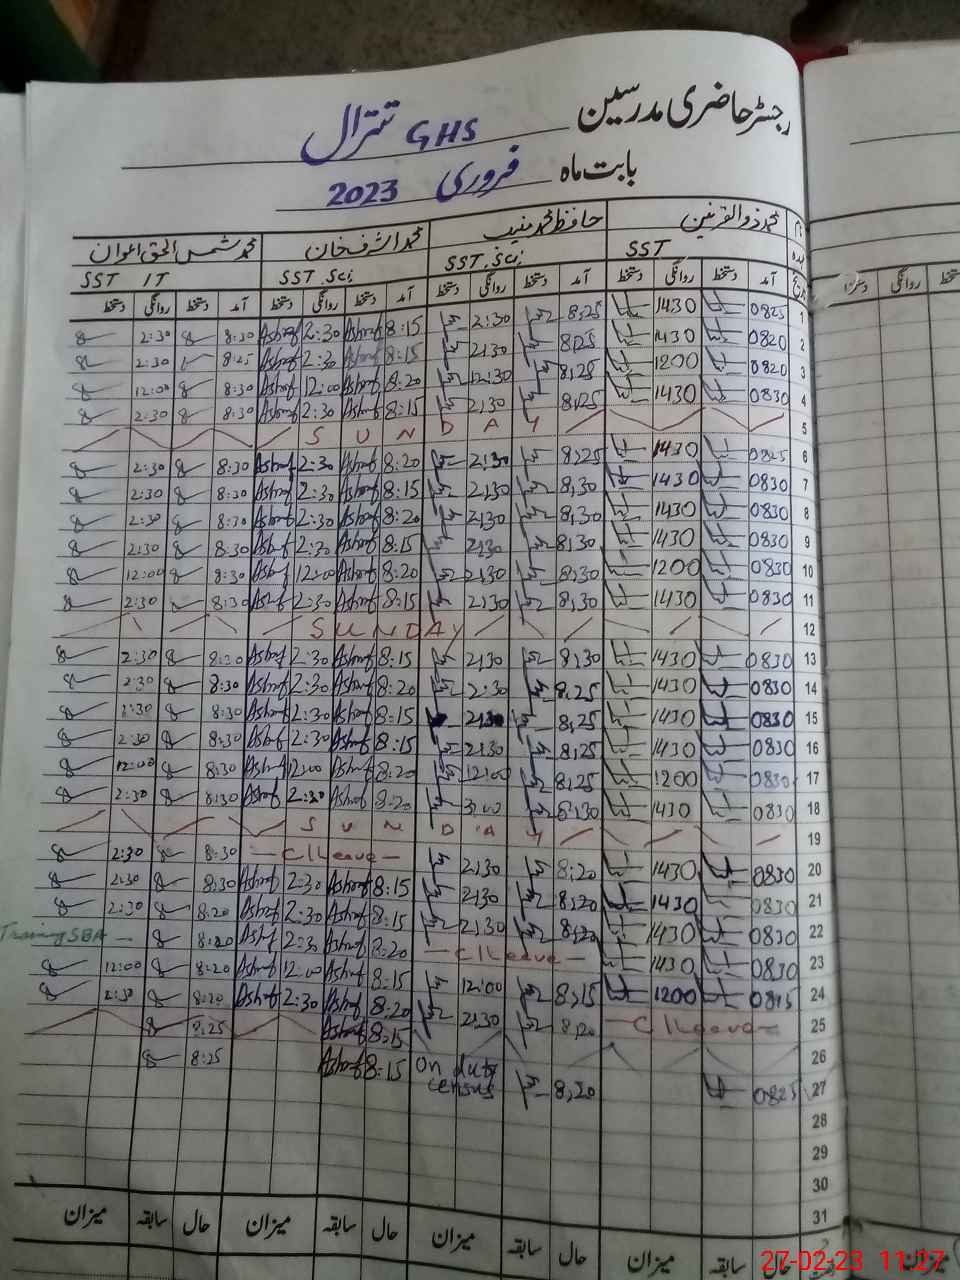 رجسٹر حاضری مدرسین GHS تترال
بابت ماہ فروری 2023
نام محمد ذوالقرنین حافظ محمد منیب محمد اشرف خان محمد شمس الحق اعوان
عہدہ SST SST. Sci SST. Sci SST IT
تاریخ آمد دستخط روانگی دستخط آمد دستخط روانگی دستخط آمد دستخط روانگی دستخط آمد دستخط روانگی دستخط
1 0825 1430 8,25 2:30 8:15 Ashraf 2:30 Ashraf 8:30 2:30
2 0820 1430 8,25 2,30 8:15 Ashraf 2:30 Ashraf 8:25 2:30
3 0820 1200 8,25 12:30 8:20 Ashraf 12:00 Ashraf 8:30 12:00
4 0830 1430 8,25 2,30 8:15 Ashraf 2:30 Ashraf 8:30 2:30
5 SUNDAY
6 0825 1430 8,25 2:30 8:20 Ashraf 2:30 Ashraf 8:30 2:30
7 0830 1430 8,30 2,30 8:15 Ashraf 2:30 Ashraf 8:30 2:30
8 0830 1430 8,30 2,30 8:20 Ashraf 2:30 Ashraf 8:30 2:30
9 0830 1430 8,30 2,30 8:15 Ashraf 2:30 Ashraf 8:30 2:30
10 0830 1200 8,30 2,30 8:20 Ashraf 12:00 Ashraf 8:30 12:00
11 0830 1430 8,30 2,30 8:15 Ashraf 2:30 Ashraf 8:30 2:30
12 SUNDAY
13 0830 1430 8,30 2,30 8:15 Ashraf 2:30 Ashraf 8:30 2:30
14 0830 1430 8,25 2:30 8:20 Ashraf 2:30 Ashraf 8:30 2:30
15 0830 1430 8,25 2,30 8:15 Ashraf 2:30 Ashraf 8:30 2:30
16 0830 1430 8,25 2,30 8:15 Ashraf 2:30 Ashraf 8:30 2:30
17 0830 1200 8,25 12:00 8:20 Ashraf 12:00 Ashraf 8:30 12:00
18 0830 1430 8,30 3,00 8:20 Ashraf 2:30 Ashraf 8:30 2:30
19 SUNDAY
20 0830 1430 8,20 2,30 C/Leave 8:30 2:30
21 0830 1430 8,20 2,30 8:15 Ashraf 2:30 Ashraf 8:30 2:30
22 0830 1430 8,20 2,30 8:15 Ashraf 2:30 Ashraf 8:20 2:30
23 0830 1430 C/Leave 8:20 Ashraf 2:30 Ashraf 8:20 Training SBA
24 0815 1200 8,15 12:00 8:15 Ashraf 12:00 Ashraf 8:20 12:00
25 C/Leave 8,20 2,30 8:20 Ashraf 2:30 Ashraf 8:20 2:30
26 8:15 Ashraf 8:25
27 0825 8,20 On duty census 8:15 Ashraf 8:25
28
29
30
31
حال سابقہ میزان حال سابقہ میزان حال سابقہ میزان حال سابقہ میزان
دستخط روانگی دستخط
27-02-23 11:27